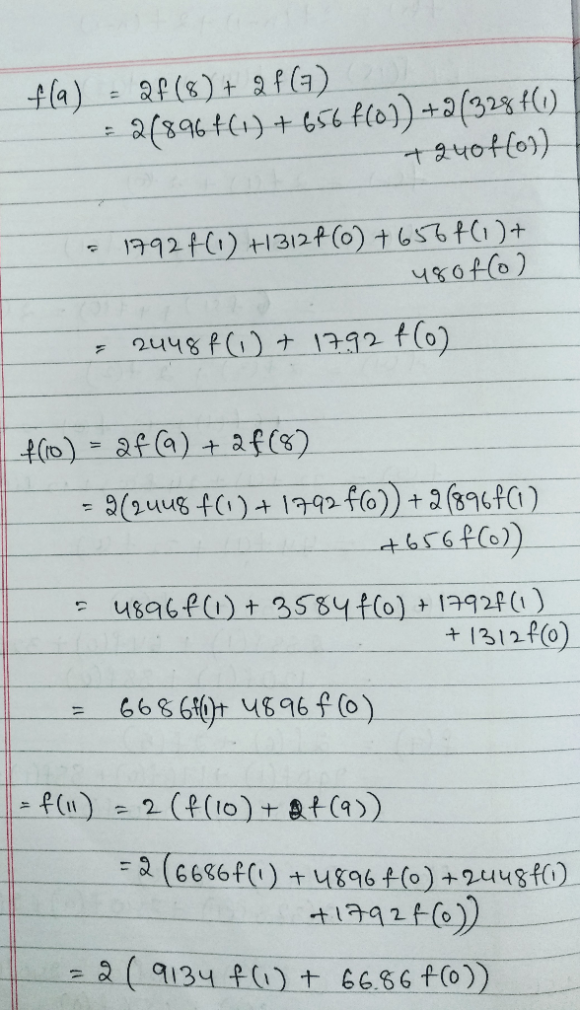 f(9) = 2f(8) + 2f(7)
= 2(896f(1) + 656f(0)) + 2(328f(1)
+ 240f(0))
= 1792f(1) + 1312f(0) + 656f(1) +
480f(0)
= 2448f(1) + 1792 f(0)
f(10) = 2f(9) + 2f(8)
= 2(2448 f(1) + 1792f(0)) + 2(896f(1)
+ 656f(0))
= 4896f(1) + 3584f(0) + 1792f(1)
+ 1312f(0)
= 6686f(1) + 4896f(0)
= f(11) = 2(f(10) + f(9))
= 2(6686f(1) + 4896f(0) + 2448f(1)
+ 1792f(0))
= 2(9134 f(1) + 6686f(0))